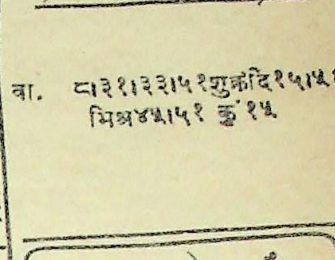 वा. ८।३१।३३।५१शुक्रंदि१५।५१
मिश्र४५।५१ कुं१५